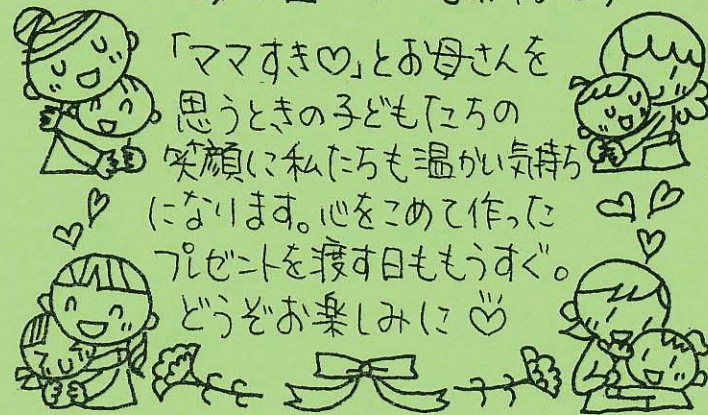 「ママすき♡」とお母さんを
思うときの子どもたちの
笑顔に私たちも温かい気持ち
になります。心をこめて作った
プレゼントを渡す日ももうすぐ。
どうぞお楽しみに♡